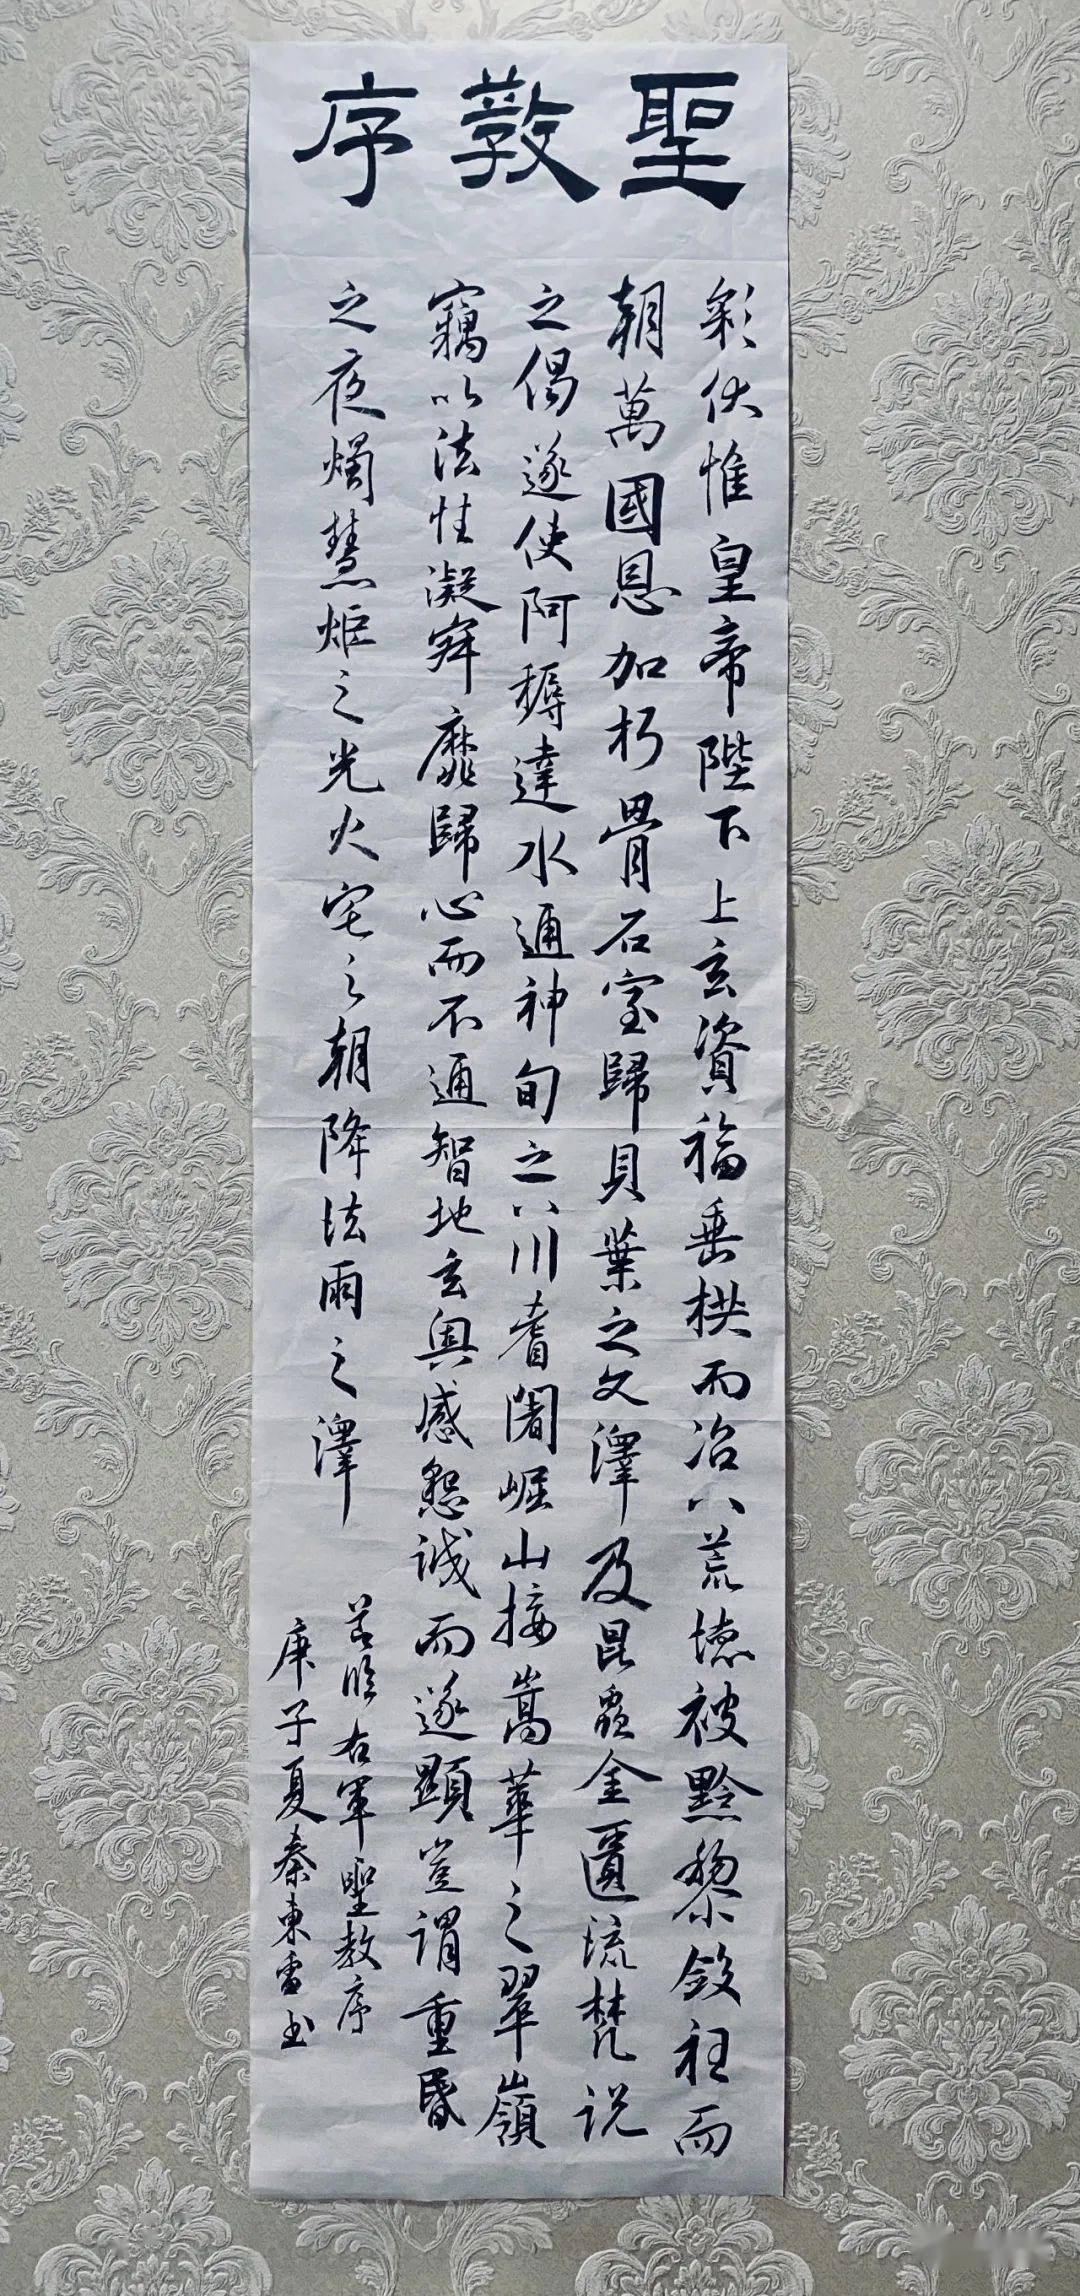 聖教序
彩伏惟皇帝陛下上玄資福垂拱而治八荒德被黔黎斂衽而
朝萬國恩加朽骨石室歸貝葉之文澤及昆蟲金匱流梵說
之偈遂使阿耨達水通神甸之八川耆闍崛山接嵩華之翠嶺
竊以法性凝寂靡歸心而不通智地玄奧感懇誠而遂顯豈謂重昏
之夜燭慧炬之光火宅之朝降法雨之澤
臨右軍聖教序
庚子夏秦東雷书